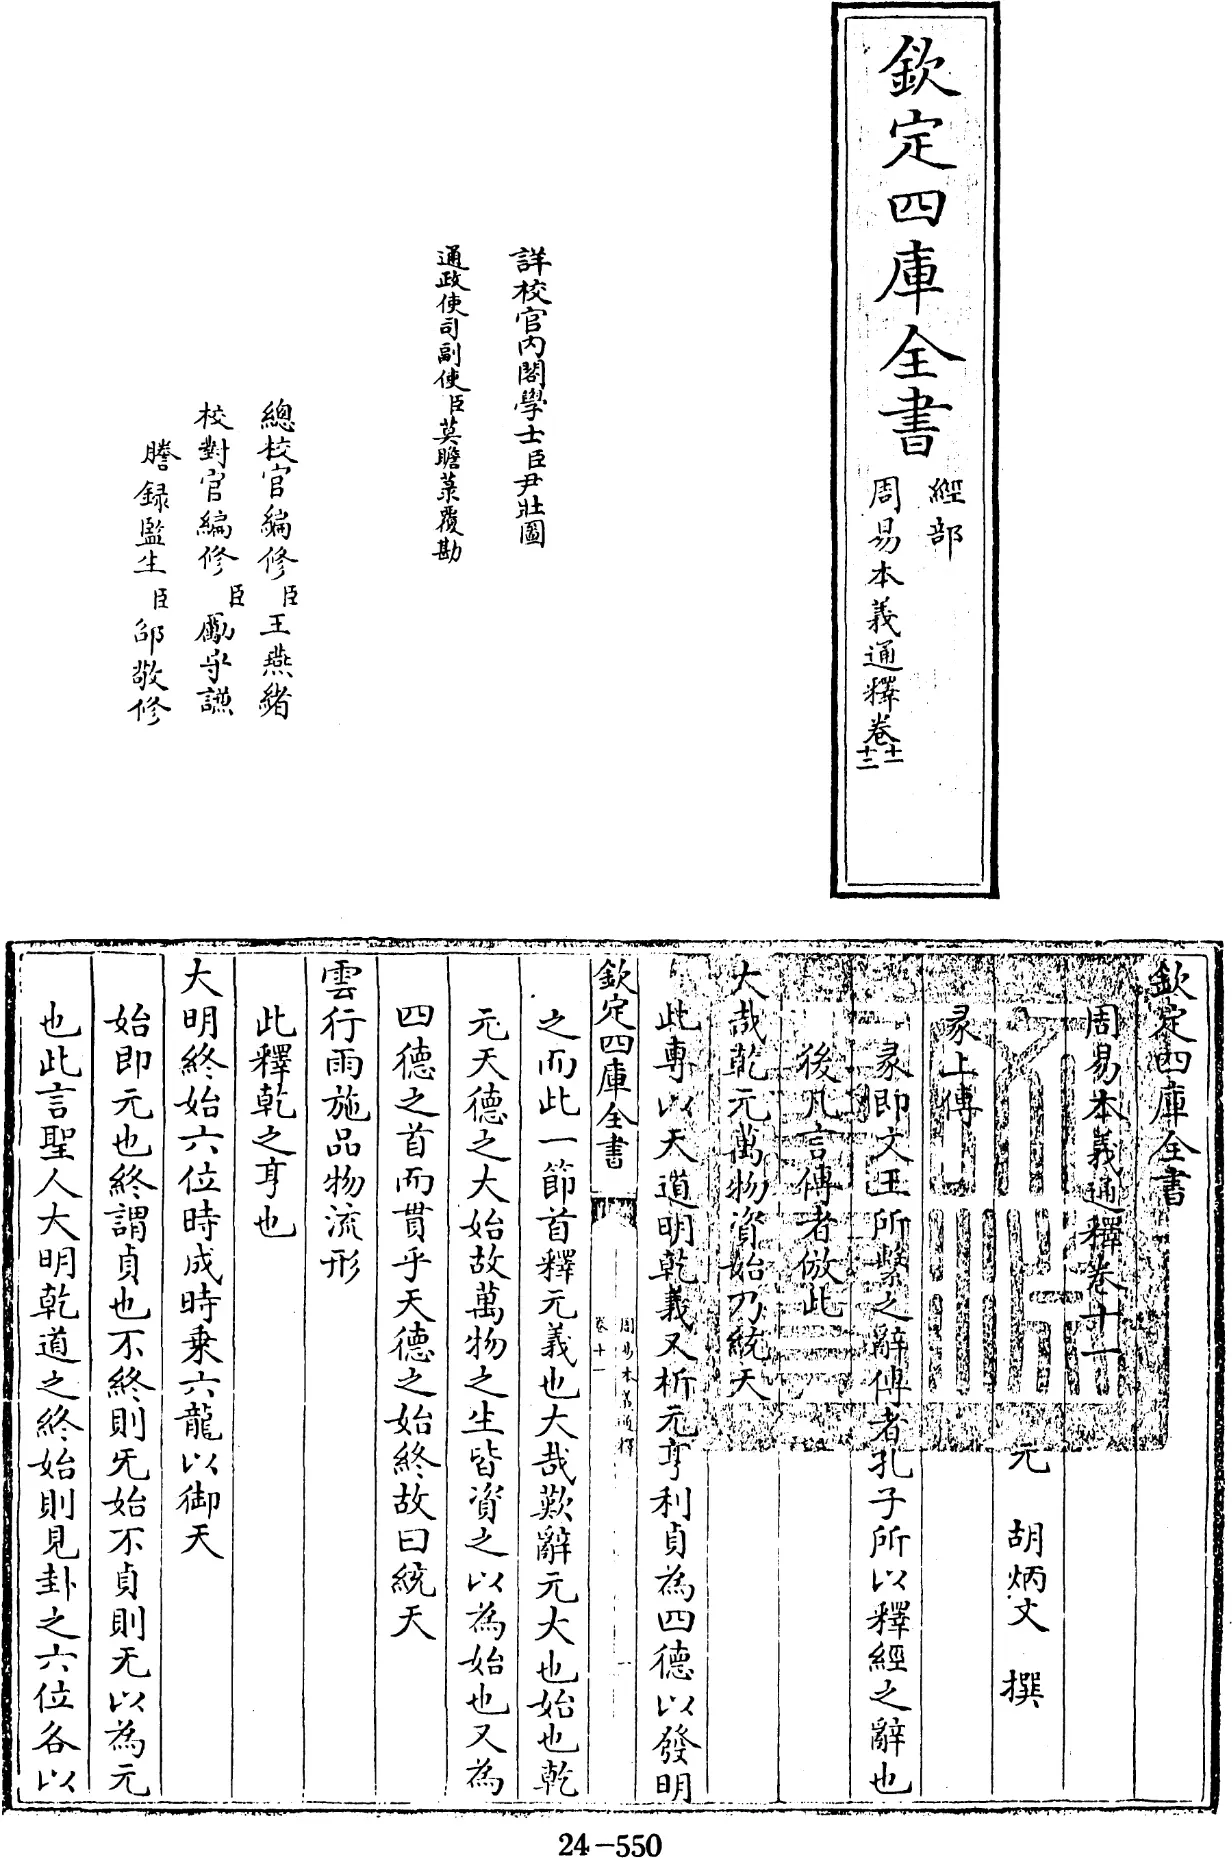 欽定四庫全書
經部
周易本義通釋卷十一
十二
詳校官內閣學士臣尹壯圖
通政使司副使臣莫瞻菉覆勘
總校官編修臣王燕緒
校對官編修臣勵守謙
謄錄監生臣邵敬修
欽定四庫全書
周易本義通釋卷十一
元 胡炳文 撰
彖上傳
彖即文王所繫之辭傳者孔子所以釋經之辭也
後凡言傳者倣此
大哉乾元萬物資始乃統天
此專以天道明乾義又析元亨利貞為四德以發明
欽定四庫全書
周易本義通釋
卷十一
一
之而此一節首釋元義也大哉歎辭元大也始也乾
元天德之大始故萬物之生皆資之以為始也又為
四德之首而貫乎天德之始終故曰統天
雲行雨施品物流形
此釋乾之亨也
大明終始六位時成時乘六龍以御天
始即元也終謂貞也不終則无始不貞則无以為元
也此言聖人大明乾道之終始則見卦之六位各以
24-550